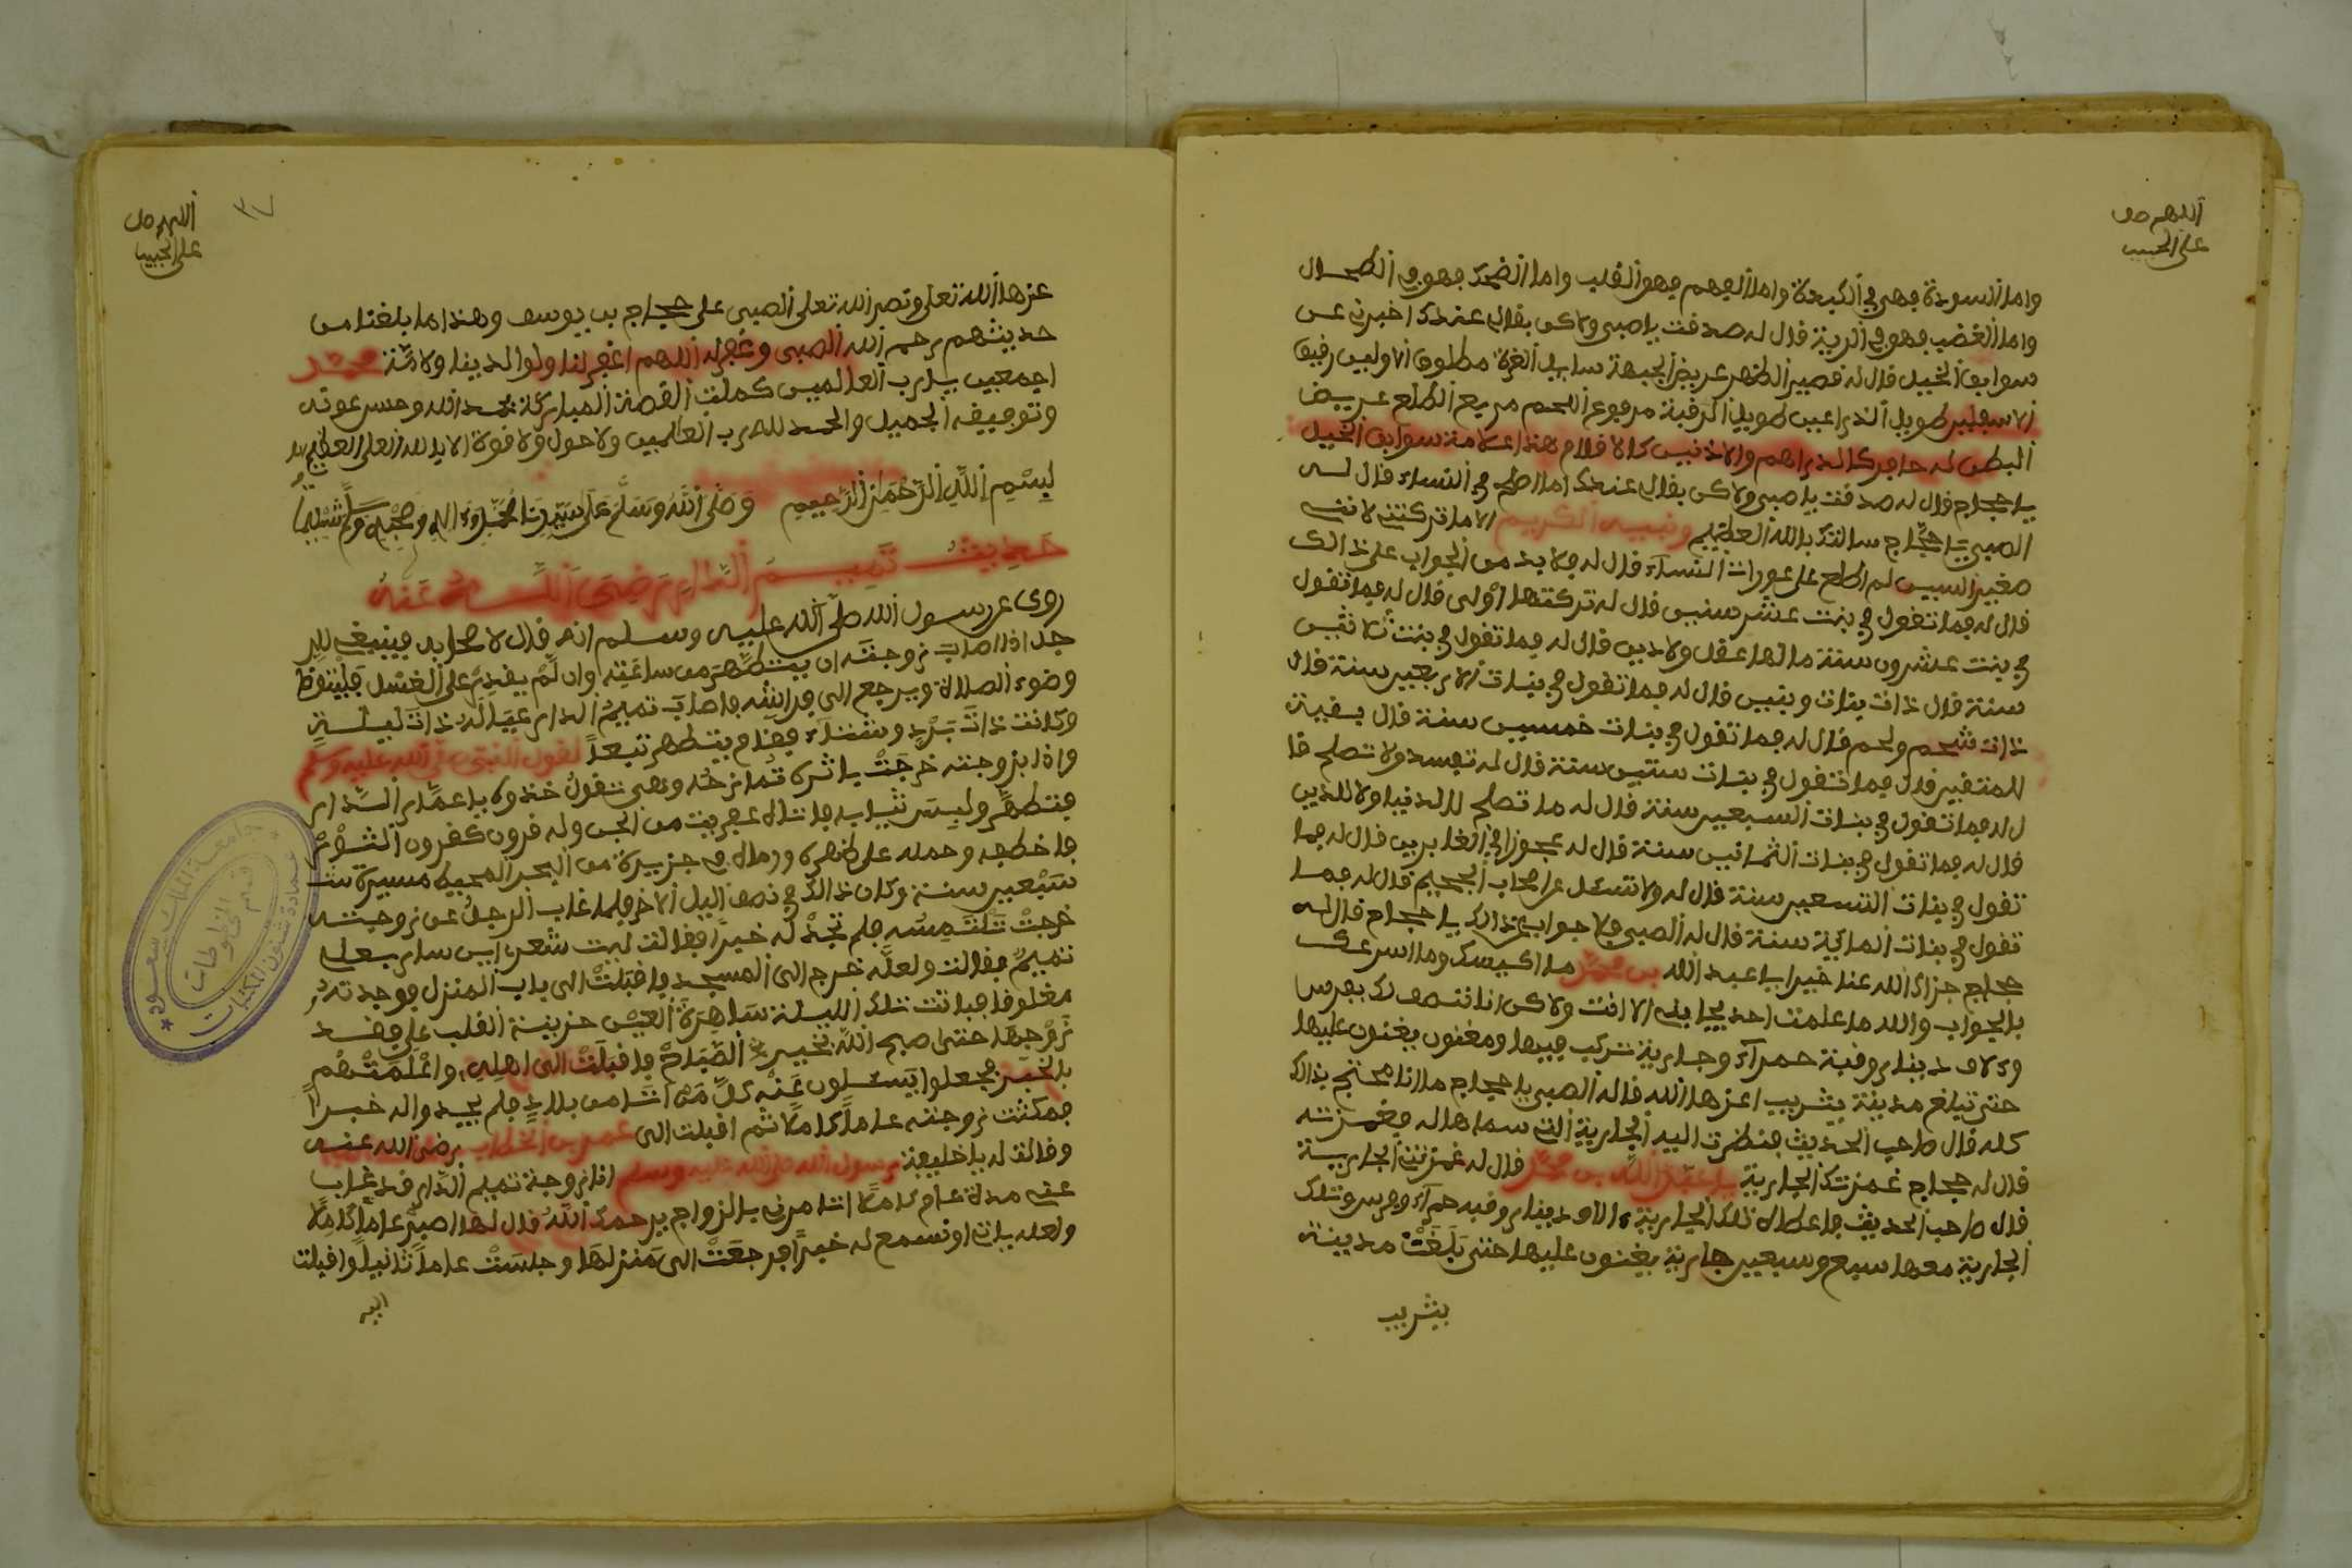 اللهم صل
على الحبيب
واما السودة فهي في الكبدة واما الفهم فهو القلب واما الضحك فهو في الطحال
واما الغضب فهو في الرية قال له صدفت يا صبي ولاكن بقا لي عندك اخبرني عن
سوابق الخيل قال له قصير الظهر عريض الجبهة سايل الغرة مطلوق الاوليين رفيق
الاسفلين طويل الذراعين طويل الرقبة مرفوع اللحم مربع الطلع عريض
البطن له حافر كالدراهم والاذنين كالاقلام هذا علامة سوابق الخيل
يا حجاج قال له صدفت يا صبي ولاكن بقا لي عندك اما اصلح في النساء قال له
الصبي يا حجاج سالتك بالله العظيم ونبيه الكريم الا ما تركتني لانني
صغير السن لم اطلع على عورات النساء قال له فلا بد من الجواب على ذالك
قال له فما تقول في بنت عشر سنين قال له تركتها اولى قال له فما تقول
في بنت عشرون سنة ما لها عقل ولا دين قال له فما تقول في بنت ثلاثين
سنة قال ذات بنات وبنين قال له فما تقول في بنات الاربعين سنة قال
ذات شحم ولحم قال له فما تقول في بنات خمسين سنة قال بقية
للمتقين قال فما تقول في بنات ستين سنة قال له تفسد ولا تصلح قا
ل له فما تقول في بنات السبعين سنة قال له ما تصلح لا للدنيا ولا للدين
قال له فما تقول في بنات الثمانين سنة قال له عجوزا في الغابرين قال له فما
تقول في بنات التسعين سنة قال له ولا تسئل عن اصحاب الجحيم قال له فما
تقول في بنات الماية سنة قال له الصبي فلا جواب عن ذالك يا حجاج قال له
حجاج جزاك الله عنا خيرا يا عبد الله بن محمد ما اكيسك وما اسرعك
بالجواب والله ما علمت احد يجاوبه الا انت ولاكن انا ننصف لك بفرس
والاف دينار وقبة حمراء وجارية تركب فيها ومغنون يغنون عليها
حتى تبلغ مدينة يثرب اعزها الله قال له الصبي يا حجاج ما انا محتج بذالك
كله قال صاحب الحديث فنظرت اليه الجارية التي سماها له فغمزته
قال له حجاج غمزتك الجارية يا عبد الله بن محمد قال له غمزتني الجارية
قال صاحب الحديث فاعطاه تلك الجارية والاف دينار وقبة حمراء وفرس وتلك
الجارية معها سبع وسبعين جارية يغنون عليها حتى بلغت مدينة
يثرب
اللهم صل
على الحبيب
٣٧
عزها الله تعلى ونصر الله تعلى الصبي على حجاج بن يوسف وهذا ما بلغنا من
حديثهم رحم الله الصبي وغفر له اللهم اغفر لنا ولوالدينا ولامة محمد
اجمعين يا رب العالمين كملت القصة المباركة بحمد الله وحسن عونه
وتوفيقه الجميل والحمد لله رب العالمين ولا حول ولا قوة الا بالله العلي العظيم
بسم الله الرحمن الرحيم وصلى الله وسلم على سيدنا محمد وءاله وصحبه وسلم تسليما
حديث تميم الداري رضي الله عنه
روى عن رسول الله صلى الله عليه وسلم انه قال لاصحابه فينبغي للر
جل اذا اصاب زوجته ان يتطهر من ساعته وان لم يقدر على الغسل فليتوظا
وضوء الصلاة ويرجع الى فراشه فاصاب تميم الدار عياله ذات ليلة
وكانت ذات برد وشتاء فقام يتطهر تبعا لقول النبي صلى الله عليه وسلم
واذا بزوجته خرجت باثره تمازحه وهي تقول خذوه يا عمار الدار
فتطهر ولبس ثيابه فاتاه عفريت من الجن وله قرون كقرون الثور
فاخطفه وحمله على ظهره ورماه في جزيرة من البحر المحيط مسيرة ست
سبعين سنة وكان ذالك في نصف اليل الاخر فلما غاب الرجل عن زوجته
خرجت تلتمسه فلم تجد له خيرا فقالت ليت شعري اين سار بعلي
تميم فقالت ولعله خرج الى المسجد فاقبلت الى باب المنزل فوجدته
مغلوقا فباتت تلك الليلة ساهرة العين حزينة القلب على فقد
زوجها حتى اصبح الله بخير الصباح فاقبلت الى اهله واعلمتهم
بالخبر فجعلوا يسئلون عنه كل من اتا من بلاد فلم يجدوا له خبرا
فمكثت زوجته عاما كاملا ثم اقبلت الى عمر بن الخطاب رضي الله عنه
وقالت له يا خليفة رسول الله صلى الله عليه وسلم انا زوجة تميم الدار قد غاب
عني مدة عام كاملا اتامرني بالزواج يرحمك الله قال لها اصبر عاما كاملا
ولعله ياتي او نسمع له خبرا فرجعت الى منزلها وجلست عاما ثانيا واقبلت
اليه
جامعة الملك سعود
عمادة شئون المكتبات
قسم المخطوطات